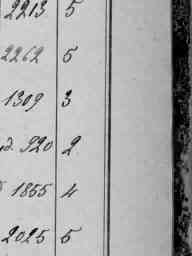 2213 5
2262 5
1309 3
д. 920 2
1855 4
2025 5